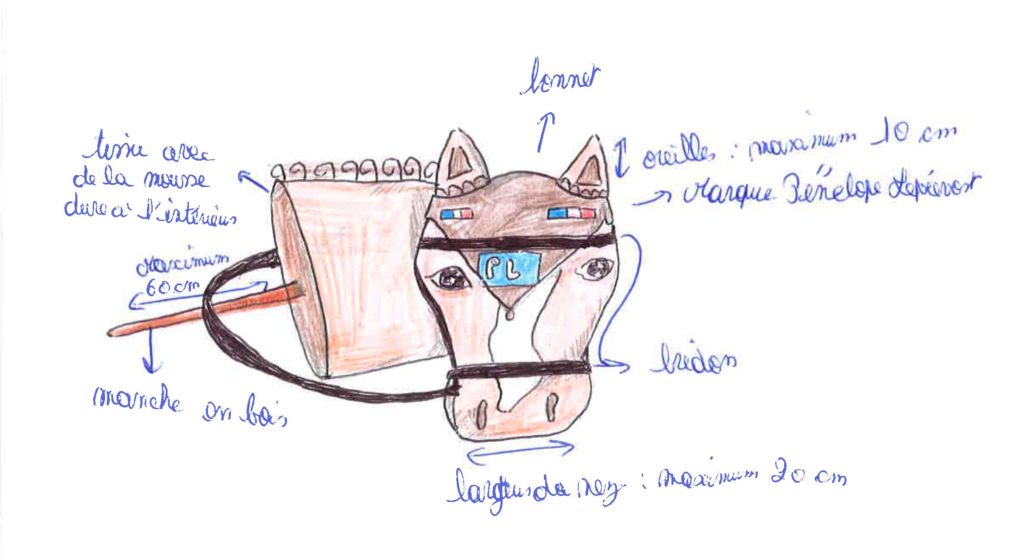 bonnet
tissu avec
de la mousse
dure à l'intérieur
oreilles : maximum 10 cm
Marque Pénélope Leprévost
maximum
60 cm
PL
bridon
manche en bois
largeur du nez : maximum 20 cm